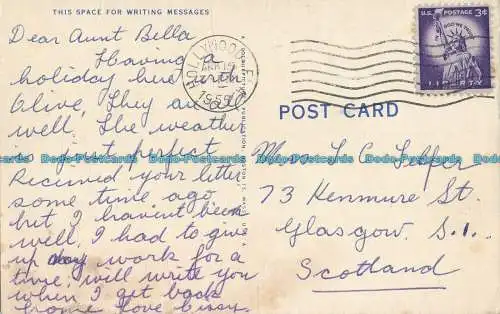 THIS SPACE FOR WRITING MESSAGES
Dear Aunt Bella
Having a
holiday here with
Olive, They are
well, The weather
is just perfect
Received your letter
some time ago
but I havent been
well, I had to give
up my work for a
time, will write you
when I get back
home love Cissy.
HOLLYWOOD, F
MAR 15
1959
U.S. POSTAGE 3¢
IN GOD WE TRUST
LIBERTY
POST CARD
Mrs L C Telfer
73 Kenmure St.
Glasgow. S.1.
Scotland
Dodo-Postcards Dodo-Postcards Dodo-Postcards Dodo-Postcards Dodo-Postcards